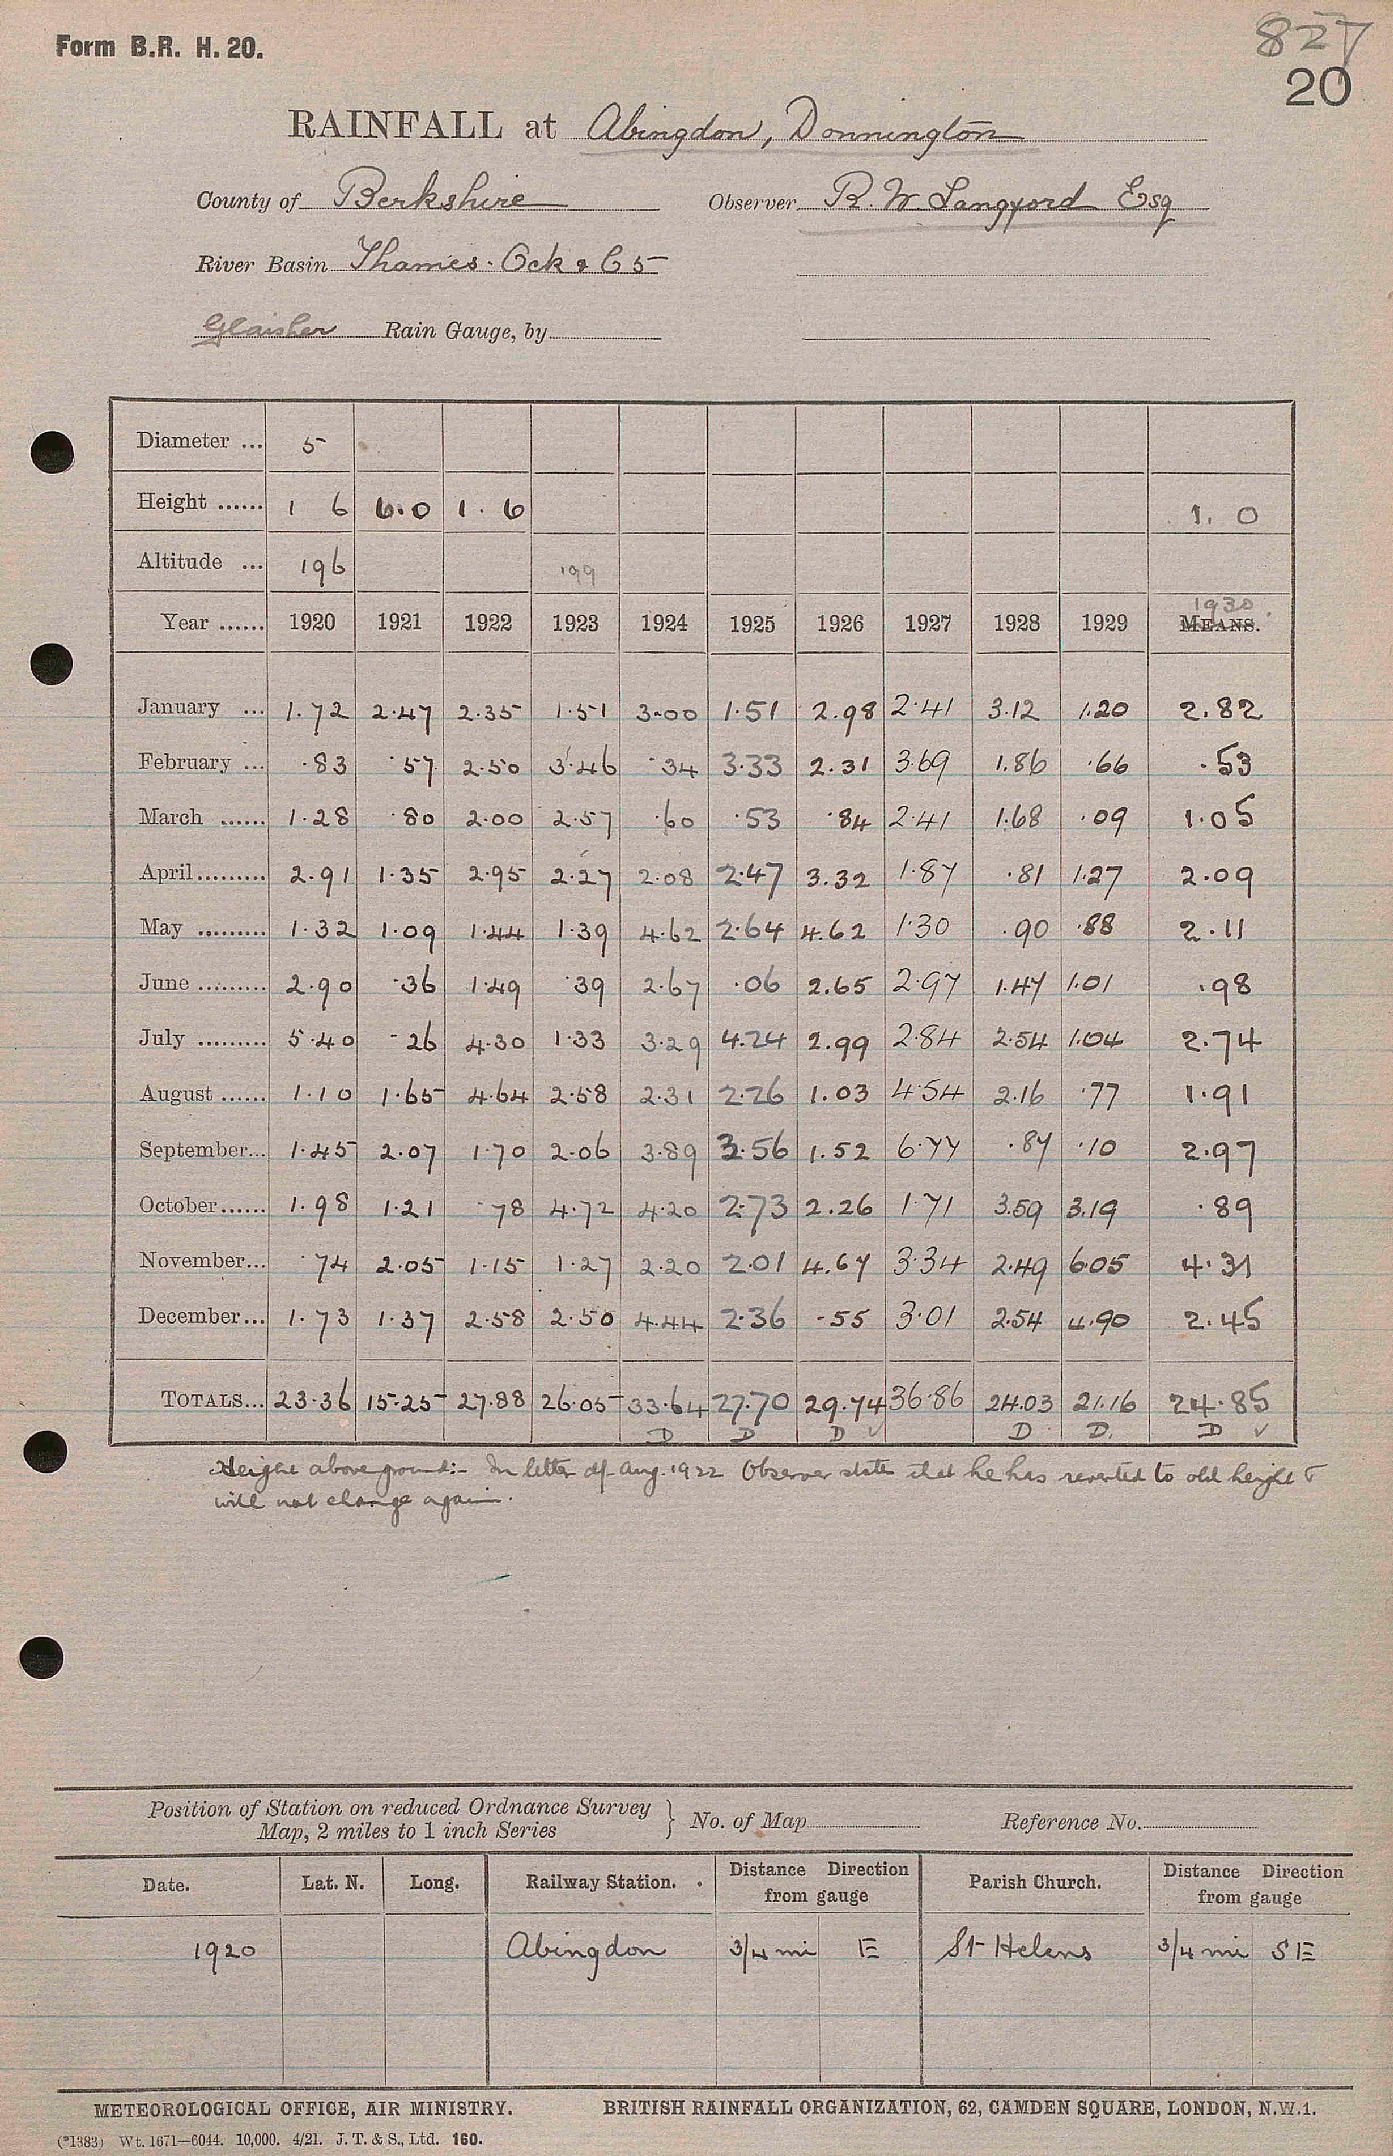 Form B.R. H. 20.
827
20
RAINFALL at Abingdon, Donnington
County of Berkshire Observer R. W. Langford Esq
River Basin Thames. Ock & C5
Glaisher Rain Gauge, by
Diameter ... 5
Height ...... 1 6 6.0 1. 6 1. 0
Altitude ... 196 199
Year ...... 1920 1921 1922 1923 1924 1925 1926 1927 1928 1929 1930 MEANS.
January ... 1.72 2.47 2.35 1.51 3.00 1.51 2.98 2.41 3.12 1.20 2.82
February ... .83 .57 2.50 3.46 .34 3.33 2.31 3.69 1.86 .66 .53
March ...... 1.28 .80 2.00 2.57 .60 .53 .84 2.41 1.68 .09 1.05
April......... 2.91 1.35 2.95 2.27 2.08 2.47 3.32 1.87 .81 1.27 2.09
May ......... 1.32 1.09 1.44 1.39 4.62 2.64 4.62 1.30 .90 .88 2.11
June ......... 2.90 .36 1.49 .39 2.67 .06 2.65 2.97 1.47 1.01 .98
July ......... 5.40 .26 4.30 1.33 3.29 4.24 2.99 2.84 2.54 1.04 2.74
August ...... 1.10 1.65 4.64 2.58 2.31 2.26 1.03 4.54 2.16 .77 1.91
September... 1.45 2.07 1.70 2.06 3.89 3.56 1.52 6.77 .87 .10 2.97
October...... 1.98 1.21 .78 4.72 4.20 2.73 2.26 1.71 3.59 3.19 .89
November... .74 2.05 1.15 1.27 2.20 2.01 4.67 3.34 2.49 6.05 4.31
December... 1.73 1.37 2.58 2.50 4.44 2.36 .55 3.01 2.54 4.90 2.45
TOTALS... 23.36 15.25 27.88 26.05 33.64 27.70 29.74 36.86 24.03 21.16 24.85
D D D ✓ D D. D ✓
Height above ground:- In letter of Aug. 1922 Observer states that he has reverted to old height &
will not change again.
Position of Station on reduced Ordnance Survey
Map, 2 miles to 1 inch Series } No. of Map Reference No.
Date. Lat. N. Long. Railway Station. Distance Direction from gauge Parish Church. Distance Direction from gauge
1920 Abingdon 3/4 mi E St Helens 3/4 mi SE
METEOROLOGICAL OFFICE, AIR MINISTRY. BRITISH RAINFALL ORGANIZATION, 62, CAMDEN SQUARE, LONDON, N.W.1.
(*1383) Wt. 1671—6044. 10,000. 4/21. J. T. & S., Ltd. 160.